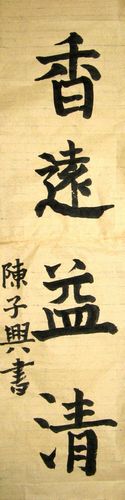 香遠益清
陳子興書